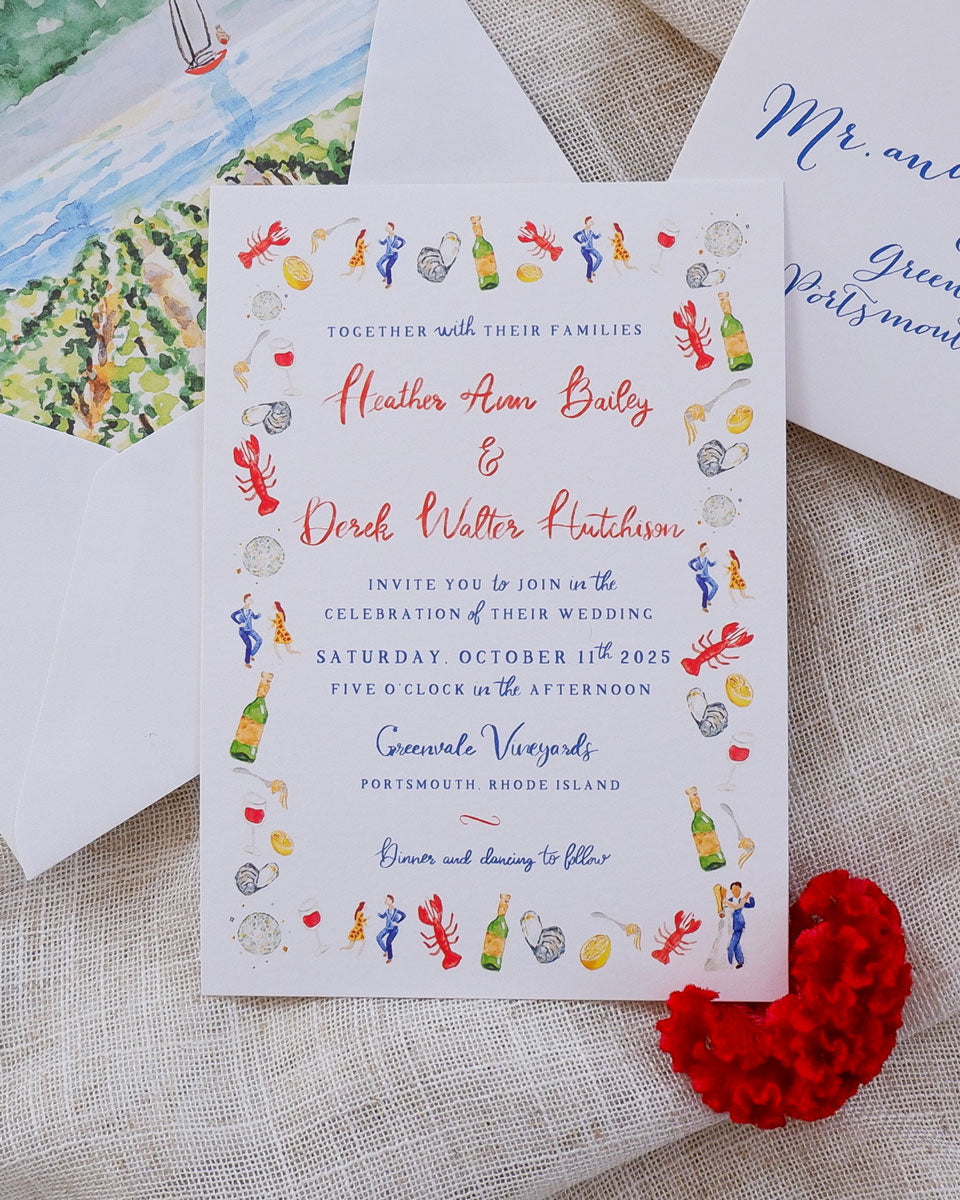 TOGETHER with THEIR FAMILIES
Heather Ann Bailey
&
Derek Walter Hutchison
INVITE YOU to JOIN in the
CELEBRATION of THEIR WEDDING
SATURDAY, OCTOBER 11th 2025
FIVE O'CLOCK in the AFTERNOON
Greenvale Vineyards
PORTSMOUTH, RHODE ISLAND
Dinner and dancing to follow
Mr. and
Green
Portsmout